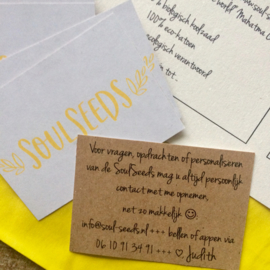 SOULSEEDS
biologisch koolzaad
100% eco-katoen
ecologisch verantwoord
Voor vragen, opdrachten of personaliseren
van de SoulSeeds mag u altijd persoonlijk
contact met me opnemen,
net zo makkelijk ☺
info@soul-seeds.nl +++ bellen of appen via
06 10 91 34 91 +++ ♡ Judith